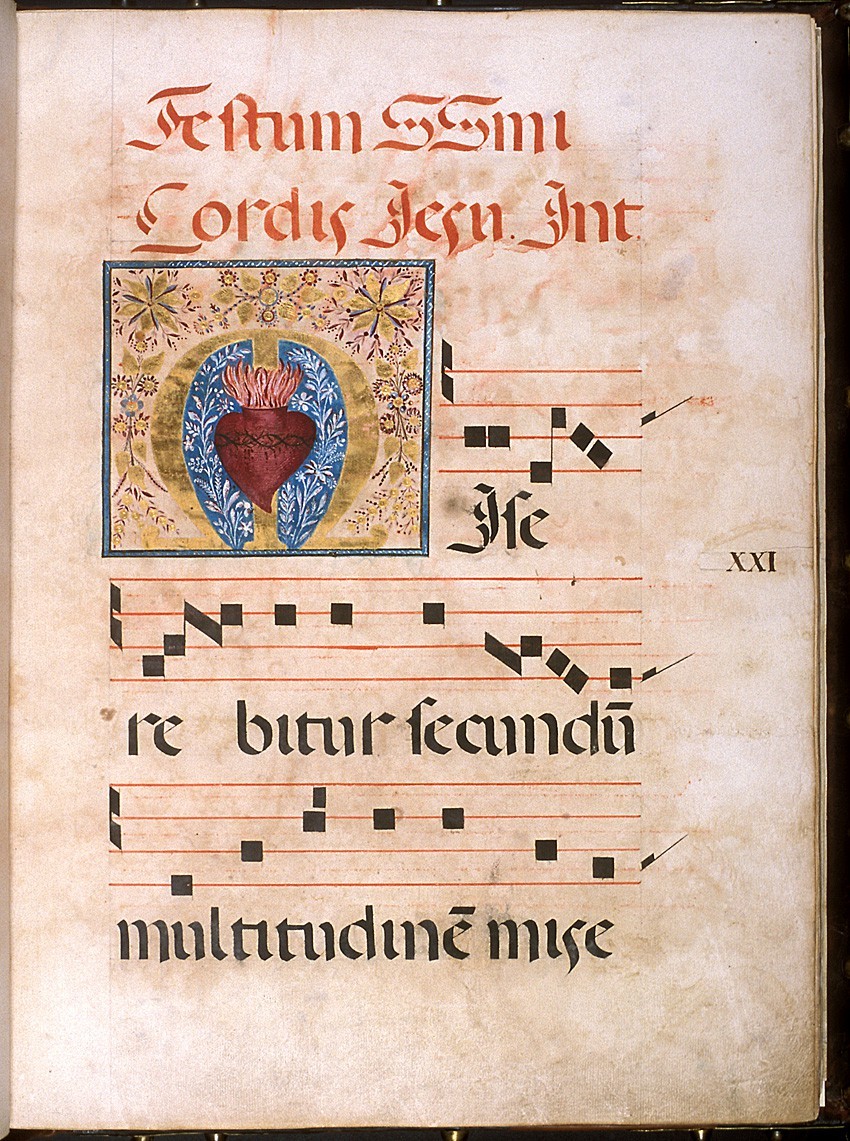 Festum SSmi
Cordis Jesu. Int.
MIse
XXI
re bitur secundū
multitudinē mise